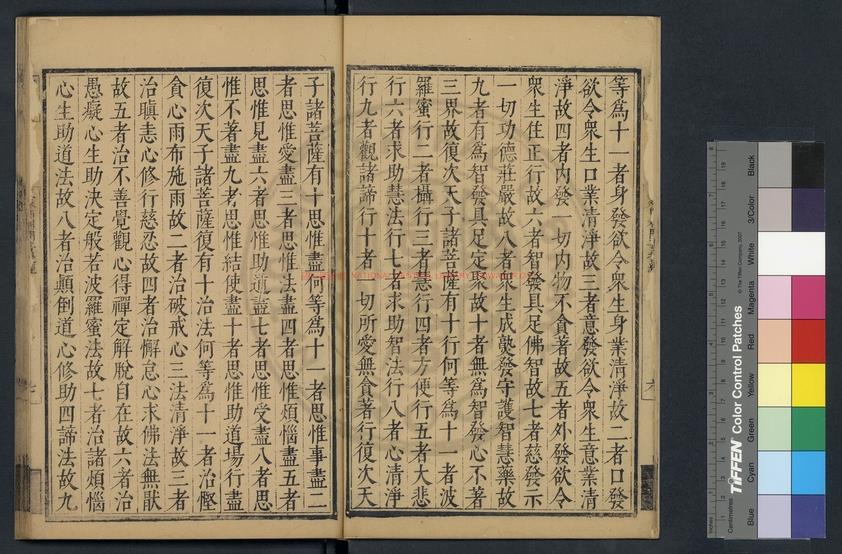 等爲十一者身發欲令衆生身業清淨故二者口發
欲令衆生口業清淨故三者意發欲令衆生意業清
淨故四者内發一切内物不貪著故五者外發欲令
衆生住正行故六者智發具足佛智故七者慈發示
一切功德莊嚴故八者衆生成熟發守護智慧藥故
九者有爲智發具足定聚故十者無爲智發心不著
三界故復次天子諸菩薩有十行何等爲十一者波
羅蜜行二者攝行三者慧行四者方便行五者大悲
行六者求助慧法行七者求助智法行八者心清淨
行九者觀諸諦行十者一切所愛無貪著行復次天
子諸菩薩有十思惟盡何等爲十一者思惟事盡二
者思惟愛盡三者思惟法盡四者思惟煩惱盡五者
思惟見盡六者思惟助道盡七者思惟受盡八者思
惟不著盡九者思惟結使盡十者思惟助道場行盡
復次天子諸菩薩復有十治法何等爲十一者治慳
貪心雨布施雨故二者治破戒心三法清淨故三者
治瞋恚心修行慈忍故四者治懈怠心求佛法無猒
故五者治不善覺觀心得禪定解脫自在故六者治
愚癡心生助決定般若波羅蜜法故七者治諸煩惱
心生助道法故八者治顛倒道心修助四諦法故九
TIFFEN Color Control Patches
© The Tiffen Company, 2007
Blue
Cyan
Green
Yellow
Red
Magenta
White
3/Color
Black
Inches
Centimetres